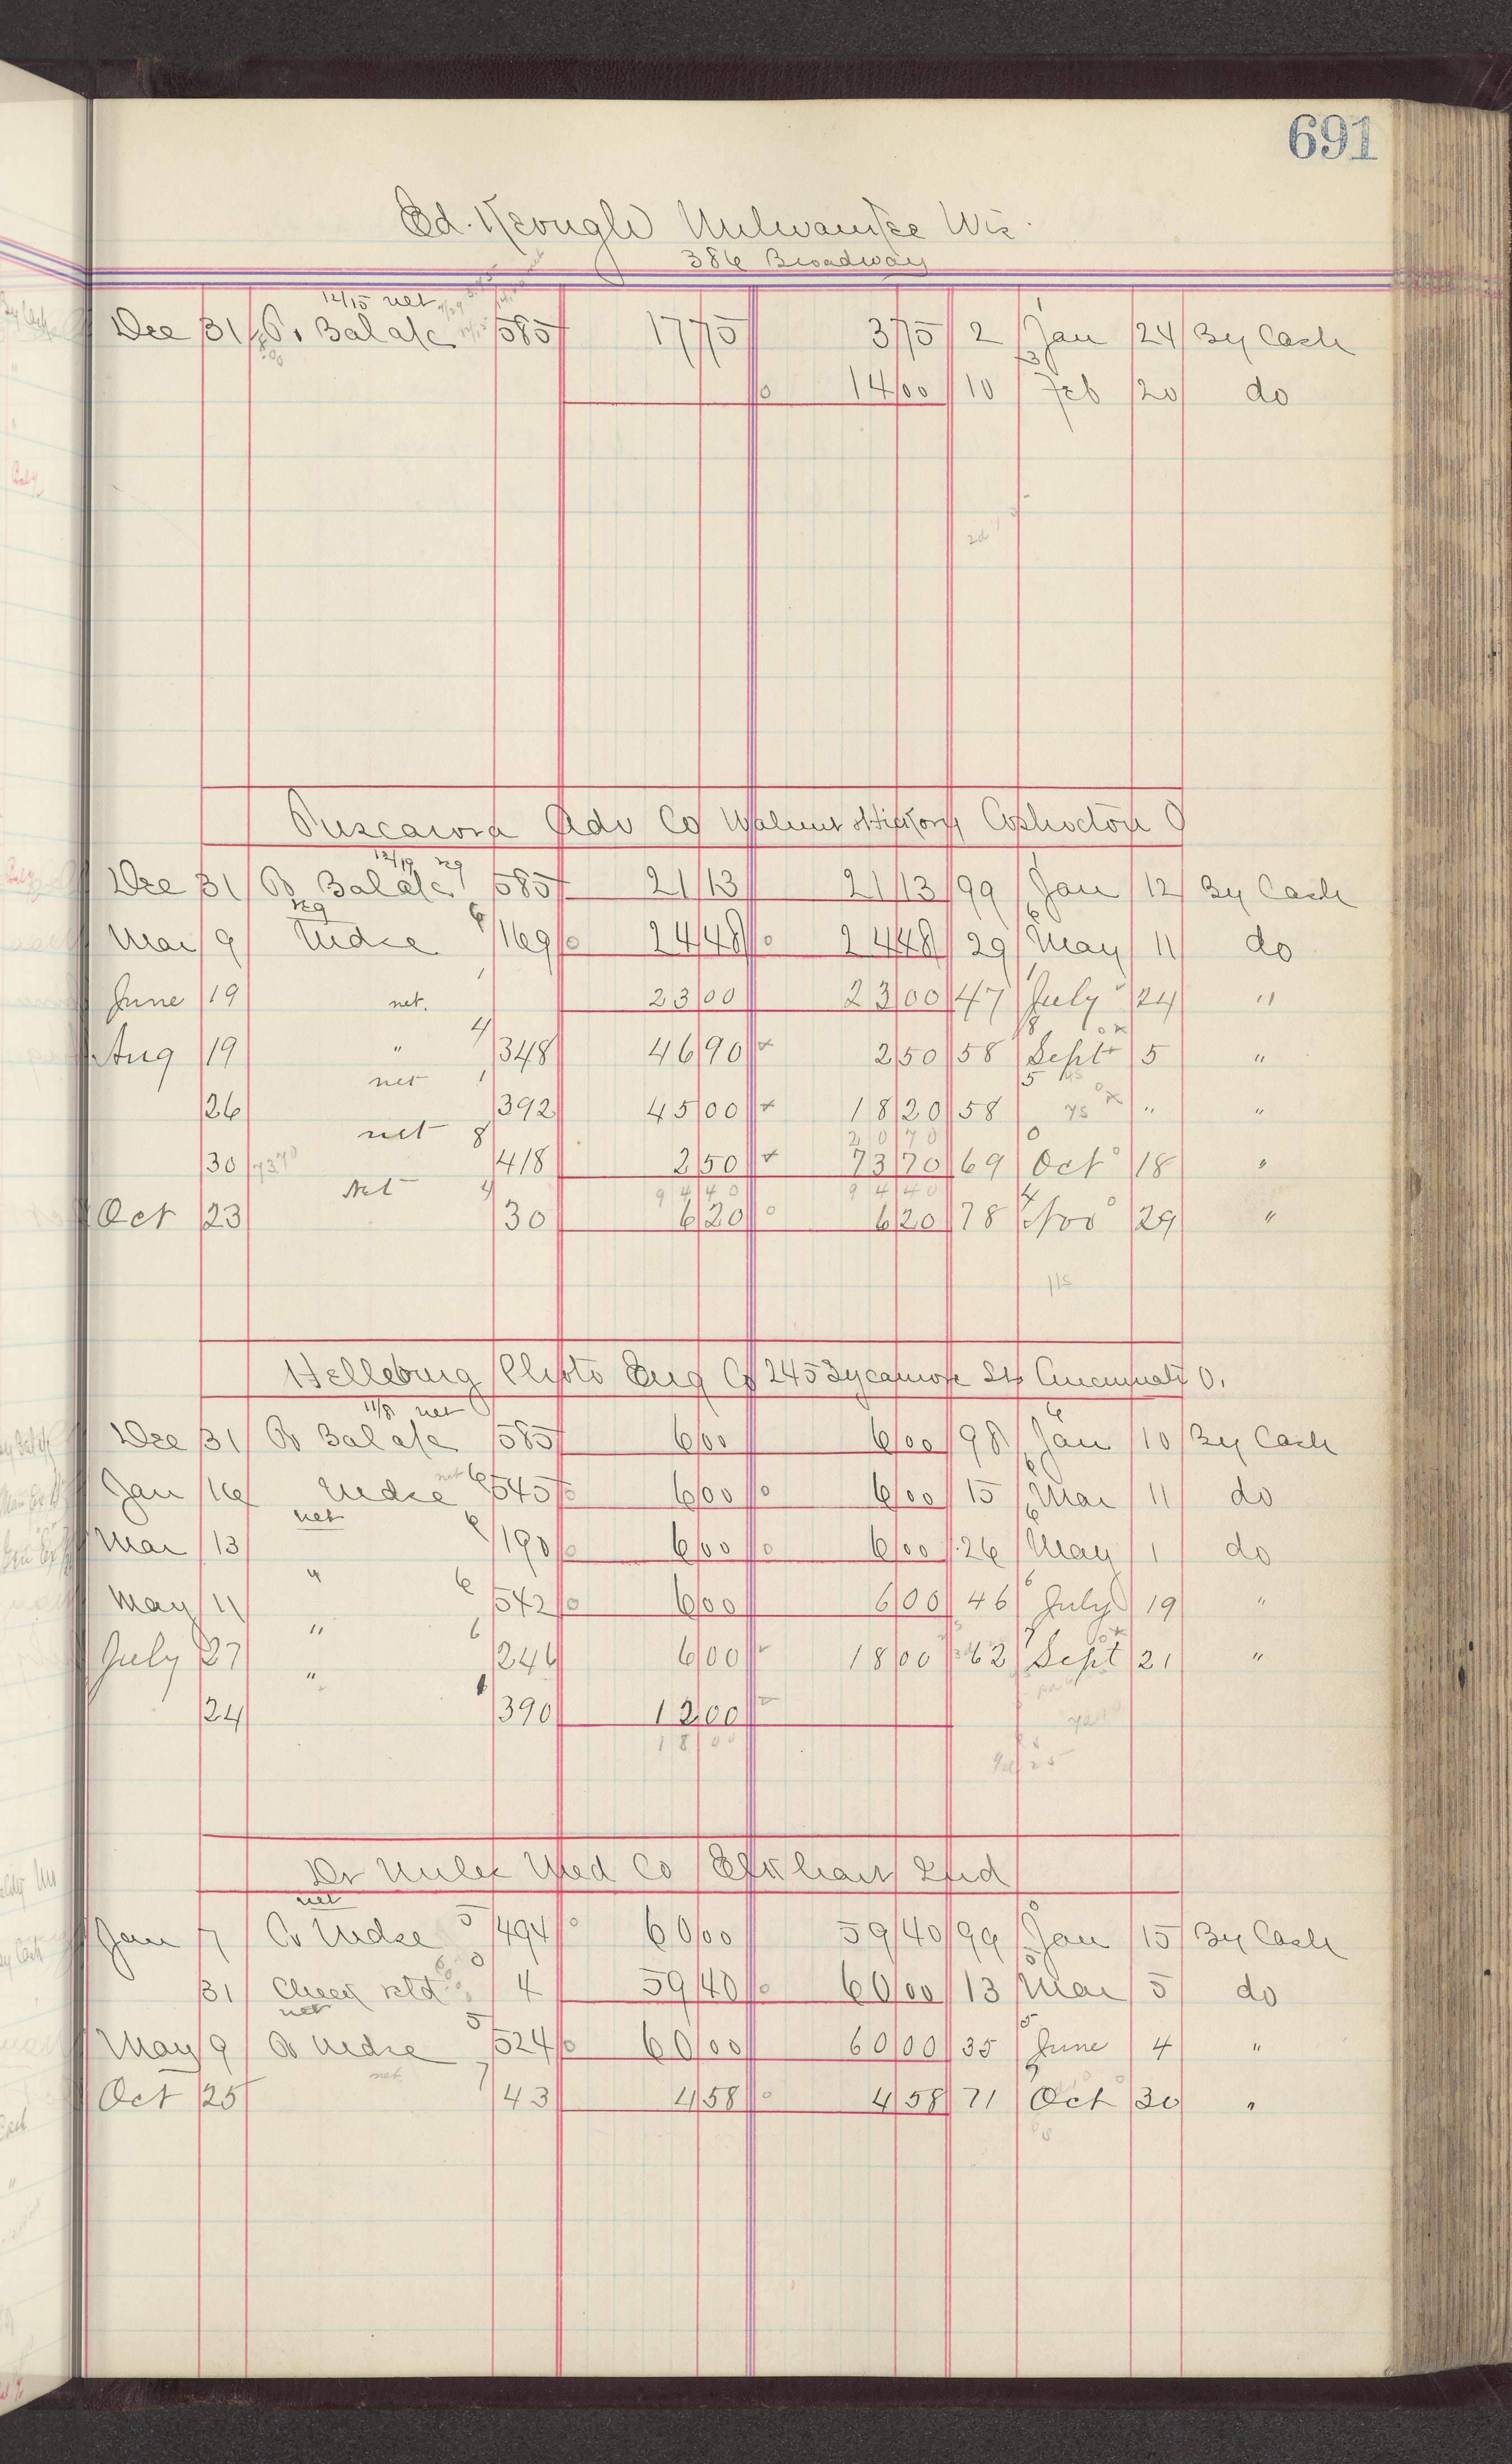 691
Ed. Keough Milwaukee Wis.
386 Broadway
12/15 net
Dec 31 To Bal a/c 585 17 75 3 75 2 Jan 24 By Cash
14 00 10 Feb 20 do
Tuscarora Adv Co Walnut & Hickory Coshocton O
12/19 reg
Dec 31 To Bal a/c 585 21 13 21 13 99 Jan 12 By Cash
reg
Mar 9 Mdse 6 169 24 48 24 48 29 May 11 do
June 19 net. 23 00 23 00 47 July 24 "
Aug 19 " 4 348 46 90 2 50 58 Sept 5 "
net
26 392 45 00 18 20 58 " "
net 8 20 70
30 7370 418 2 50 73 70 69 Oct 18 "
Net 4 94 40 94 40
Oct 23 30 6 20 6 20 78 Nov 29 "
115
Helleburg Photo Eng Co 245 Sycamore St Cincinnati O.
11/8 net
Dec 31 To Bal a/c 585 6 00 6 00 98 Jan 10 By Cash
Jan 16 Mdse net 6 545 6 00 6 00 15 Mar 11 do
net
Mar 13 6 190 6 00 6 00 26 May 1 do
May 11 " 6 542 6 00 6 00 46 July 19 "
July 27 " 6 246 6 00 18 00 62 Sept 21 "
24 " 390 12 00
18 00
Dr Miles Med Co Elkhart Ind
net
Jan 7 To Mdse 5 494 60 00 59 40 99 Jan 15 By Cash
31 Check retd 4 59 40 60 00 13 Mar 5 do
net
May 9 To Mdse 5 524 60 00 60 00 35 June 4 "
net
Oct 25 7 43 4 58 4 58 71 Oct 30 "